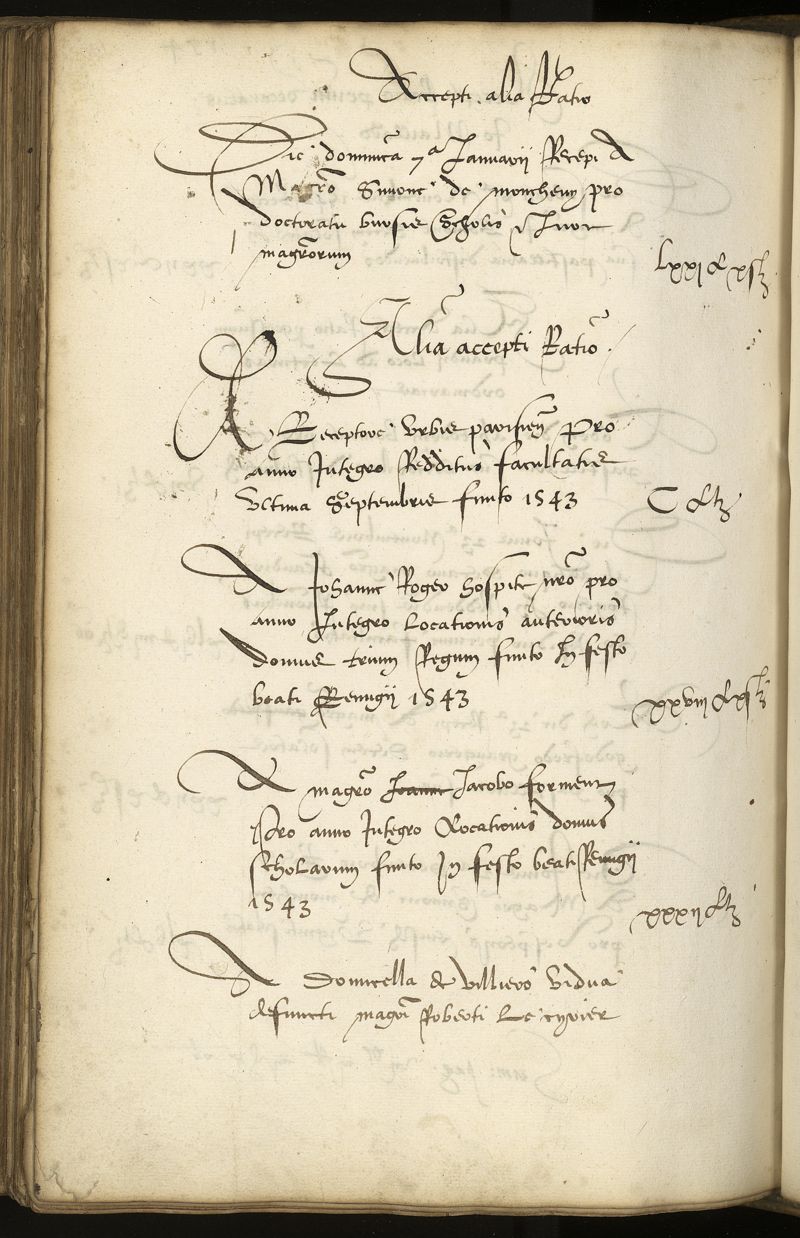 Accepti alia Ratio
Die dominica 7a Januarij Recepi A
Magro Simone de moncheny pro
doctoratu bursis Scholis &
magrorum
lxxj lt xs tz
Alia accepti Ratio
A Receptore Urbis parisien Pro
anno Integro Redditus facultatis
Ultima Septembris finito 1543
C lt tz
A Johanne Roger hospite nro pro
anno Integro Locationis anterioris
domus trium Regum finito In festo
beati Remigij 1543
xxviij lt xs tz
A magro Joanne Jacobo forment
Pro anno Integro Locationis domus
scholarum finito In festo beati Remigij
1543
xxxij lt tz
A domicella de villiers vidua
defuncti magri Roberti Le cyrier